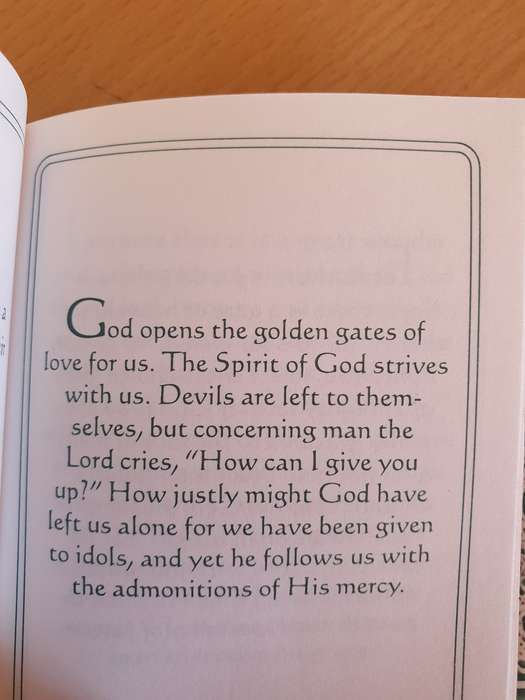 God opens the golden gates of
love for us. The Spirit of God strives
with us. Devils are left to them-
selves, but concerning man the
Lord cries, “How can I give you
up?” How justly might God have
left us alone for we have been given
to idols, and yet he follows us with
the admonitions of His mercy.